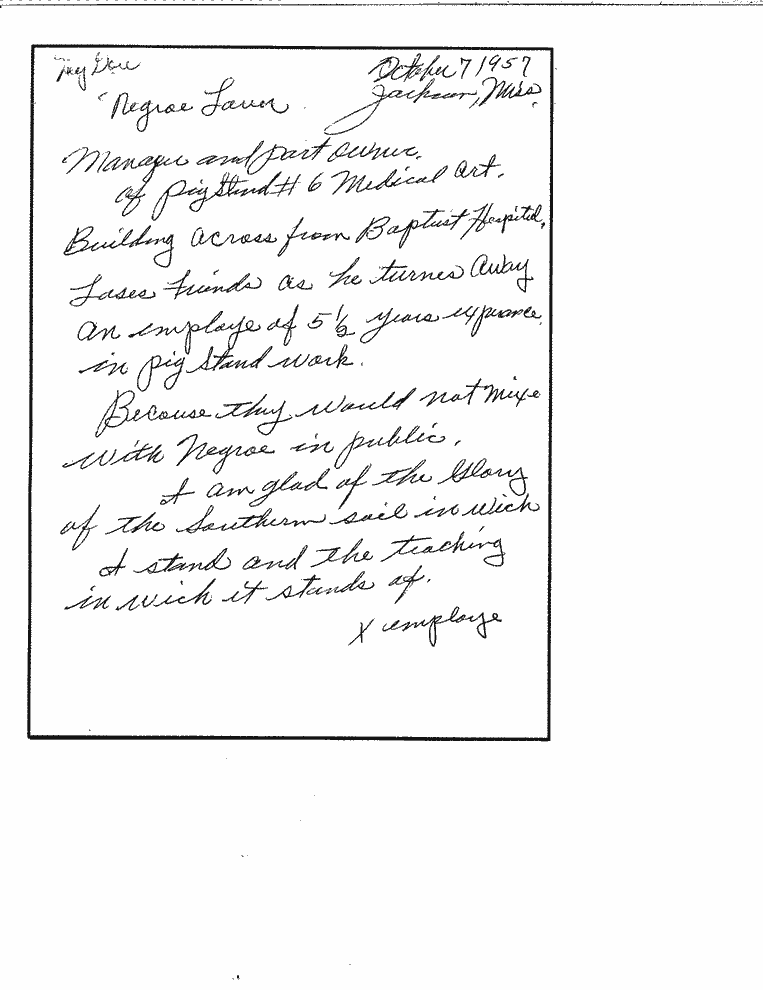 October 7 1957
Jackson, Miss.
"Negroe Lover
Manager and part owner.
of pig Stand # 6 Medical Art.
Building across from Baptist Hospital,
Loses friends as he turnes away
an employe of 5 1/2 years experance
in pig Stand work.
Because they would not mixe
with Negroe in public.
I am glad of the Glory
of the Southern soil in wich
I stand and the teaching
in wich it stands of.
X employe